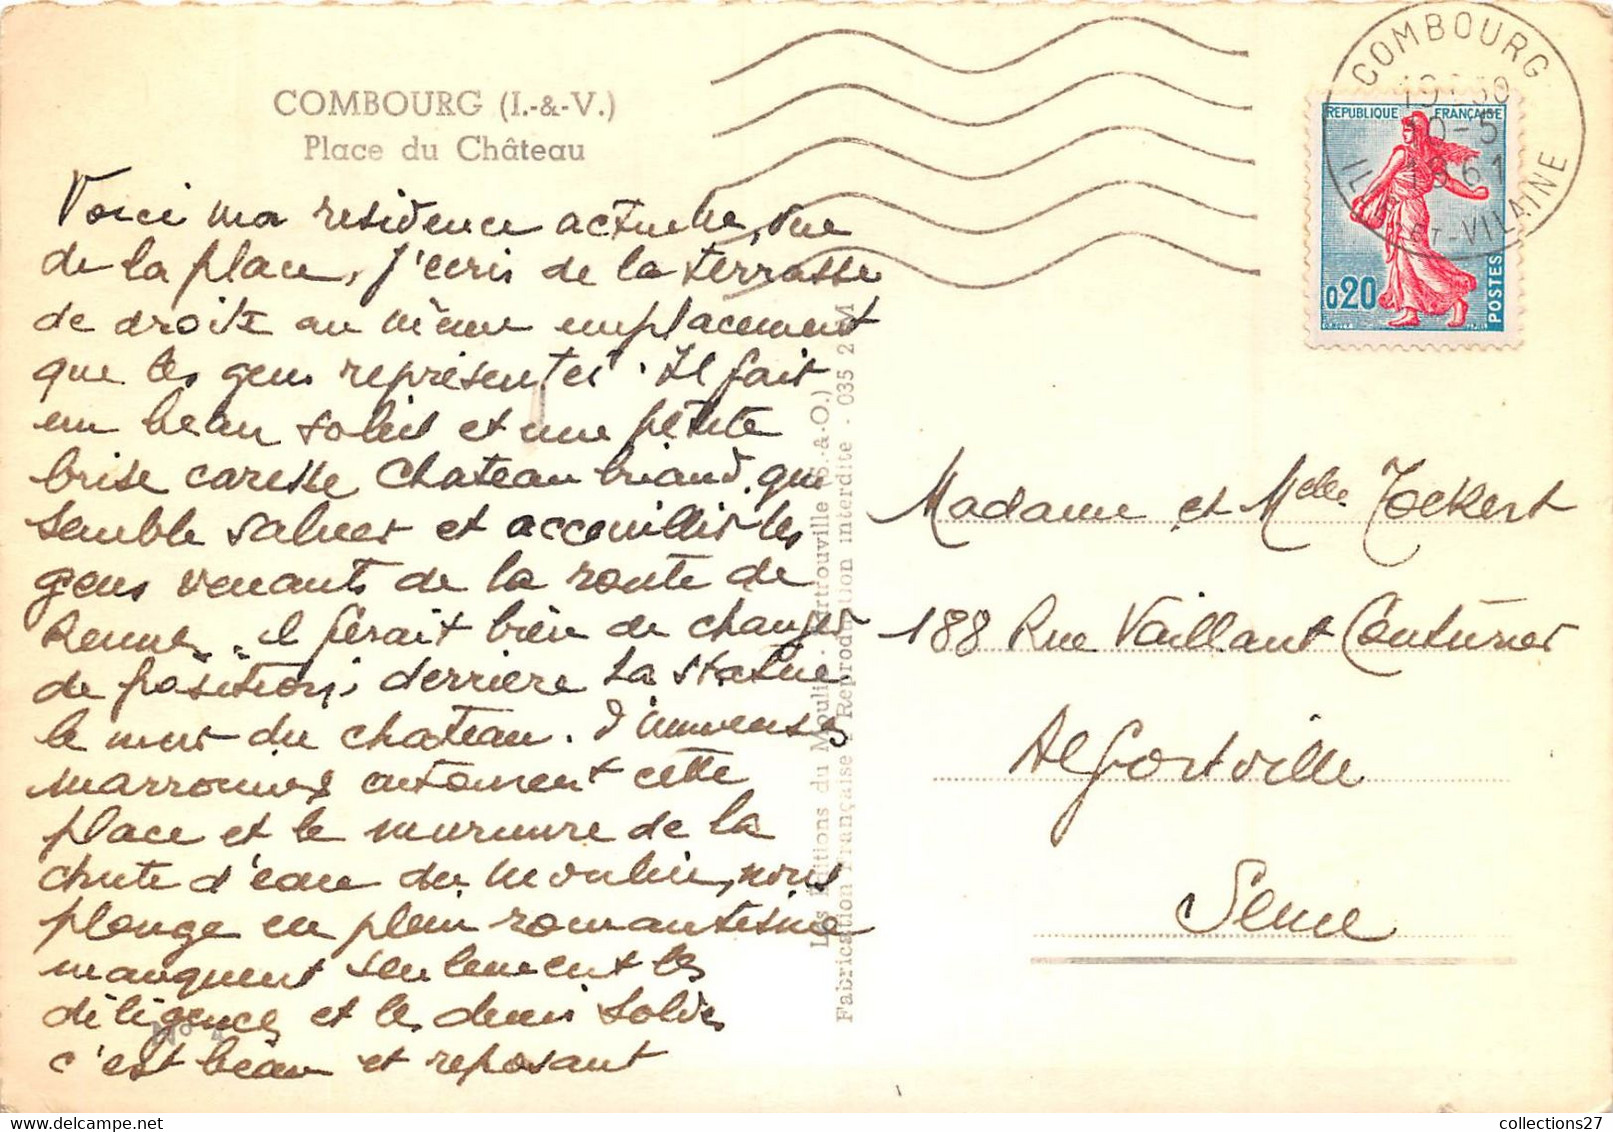 COMBOURG (I.-&-V.)
Place du Château
Voici ma residence actuelle, vue
de la place, j'écris de la terrasse
de droite au même emplacement
que les gens représentés. Il fait
un beau soleil et une petite
brise caresse Chateaubriand, qui
semble saluer et accouillir les
gens venants de la route de
Renne, il ferait bien de changer
de position, derrière la statue
le mur du chateau. d'immenses
marronniers entourent cette
place et le murmure de la
chute d'eau du moulin, nous
plonge en plein romantisme
manquent seulement les
diligences et les demi soldes
c'est beau et reposant
No 4
Les Editions du Moulin - Sartrouville (S.-&-O.)
Fabrication Française - Reproduction interdite - 035 2 M
COMBOURG
19 30
10-5
1961
ILLE-ET-VILAINE
REPUBLIQUE FRANÇAISE
0.20
POSTES
Madame et Melle Jockert
188 Rue Vaillant Couturier
Alfortville
Seine
collections27